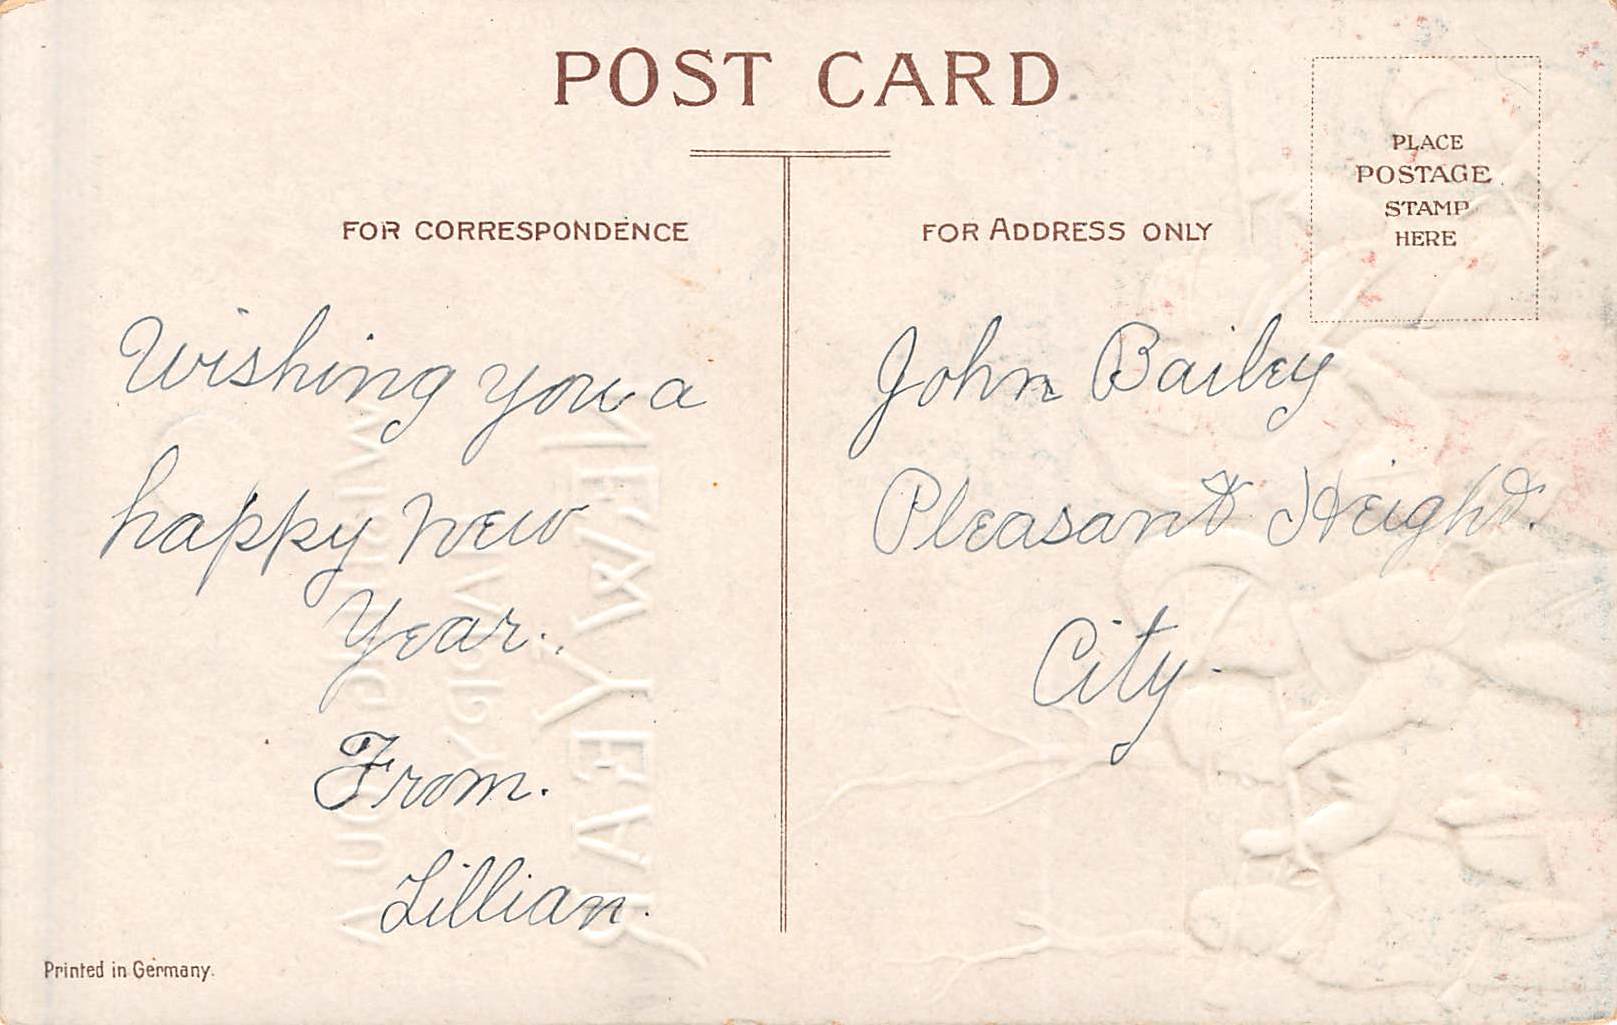 POST CARD
PLACE
POSTAGE
STAMP
HERE
FOR CORRESPONDENCE
FOR ADDRESS ONLY
Wishing you a
happy New
Year.
From.
Lillian.
John Bailey
Pleasant Height.
City.
WISHING YOU A
HAPPY
NEW YEAR
Printed in Germany.